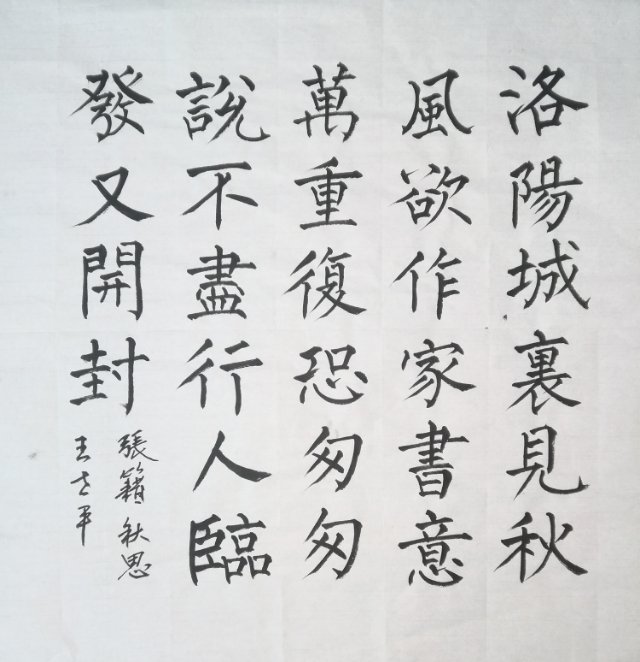 洛陽城裏見秋
風欲作家書意
萬重復恐匆匆
說不盡行人臨
發又開封
張籍秋思
王志平